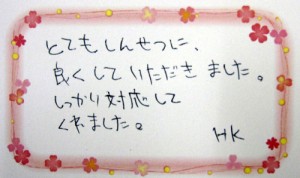 とてもしんせつに、
良くしていただきました。
しっかり対応して
くれました。
HK